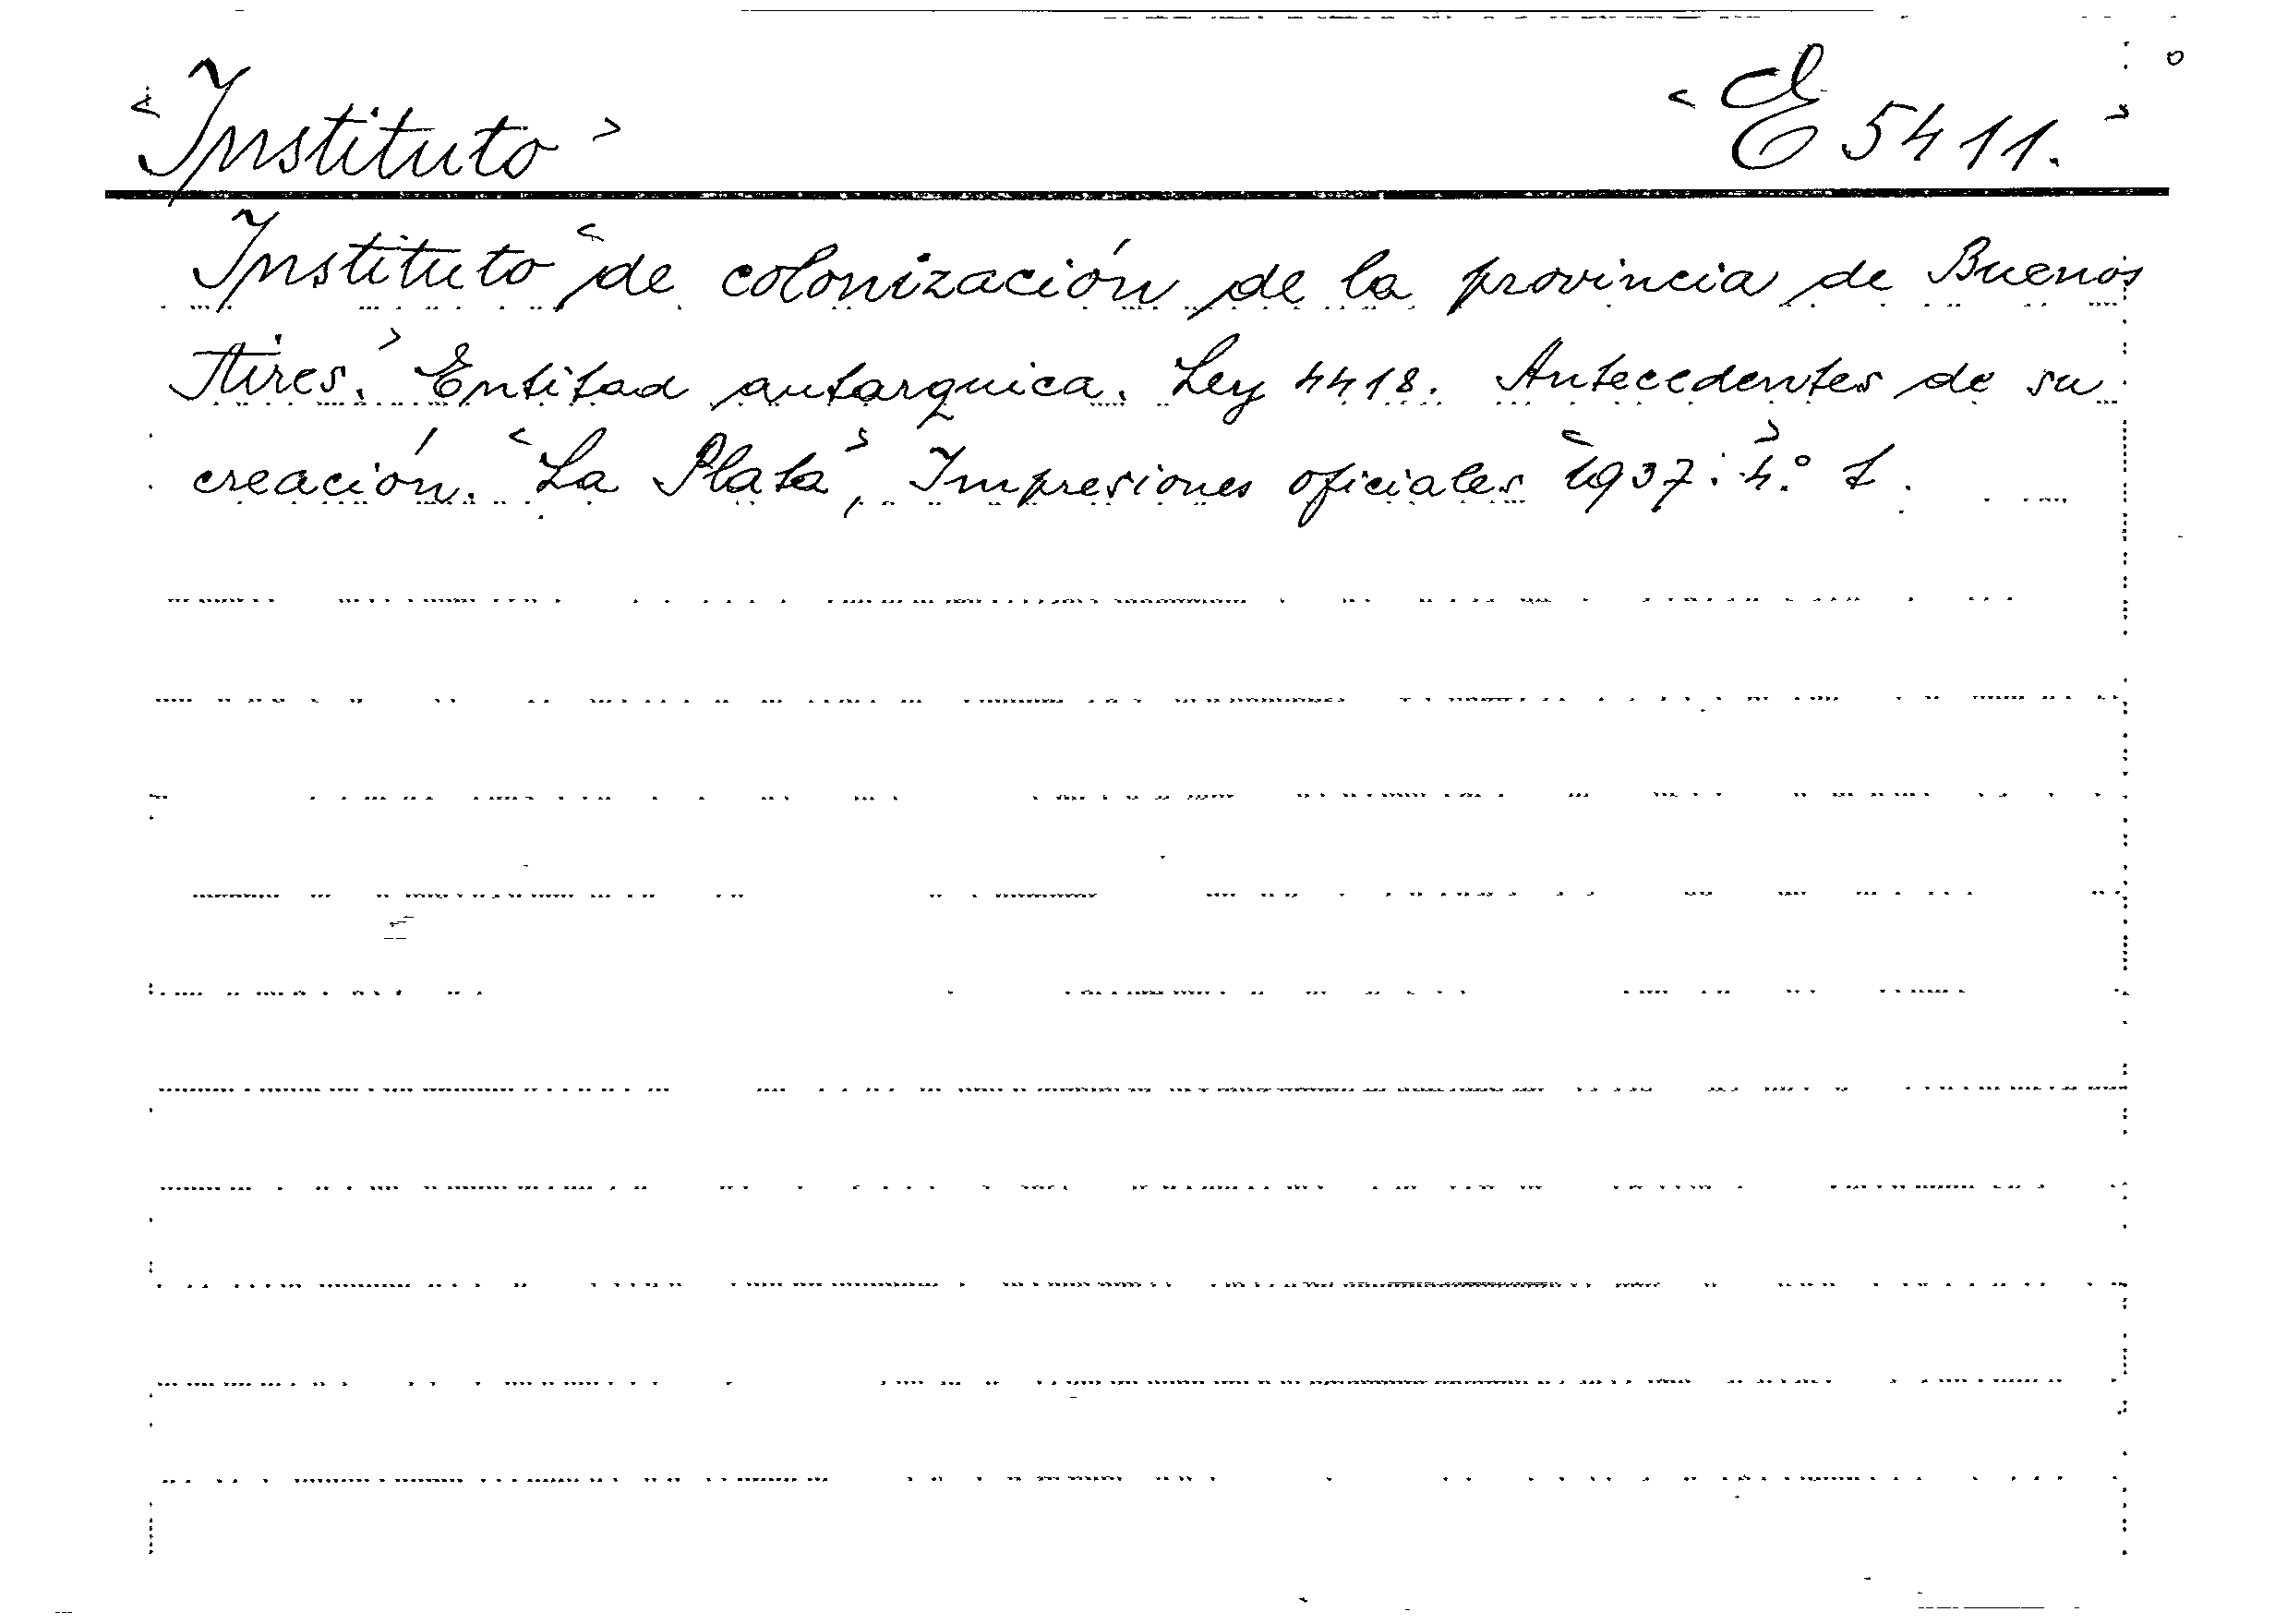 <Instituto> <E 5411.>
Instituto <de colonización de la provincia de Buenos
Aires.> Entidad autarquica. Ley 4418. Antecedentes de su
creación. <La Plata>, Impresiones oficiales <1937.> 4.º L.